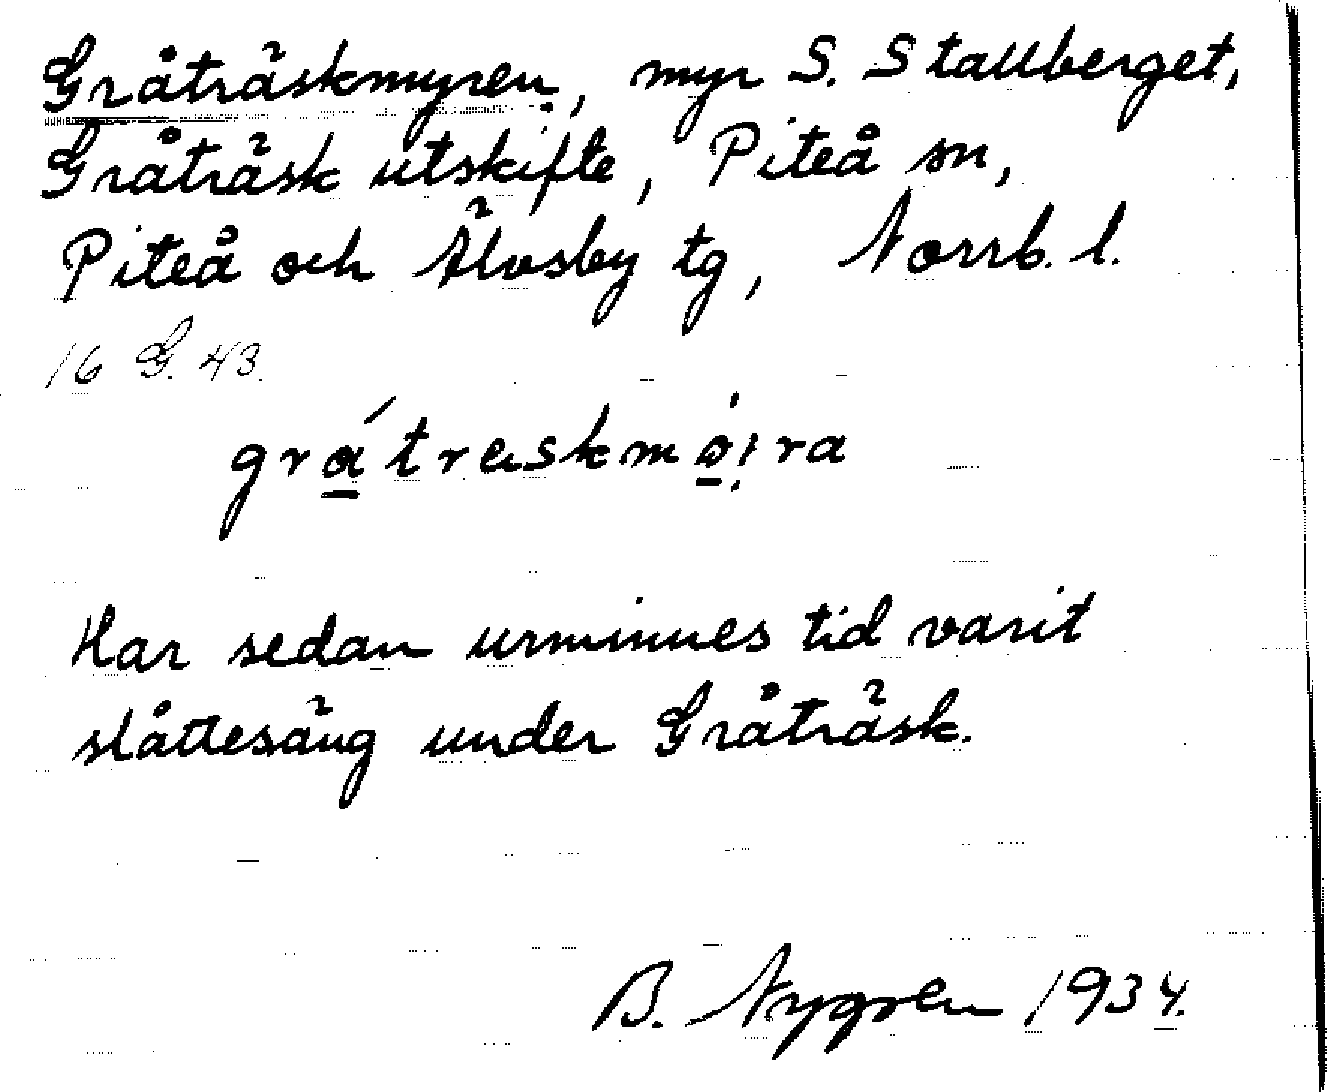 Gråträskmyren, myr S. Stallberget,
Gråträsk utskifte, Piteå sn,
Piteå och Älvsby tg, Norrb. l.
16 G. 43.
grátreskmøi̯ra
Har sedan urminnes tid varit
slåttesäng under Gråträsk.
B. Nygren 1934.